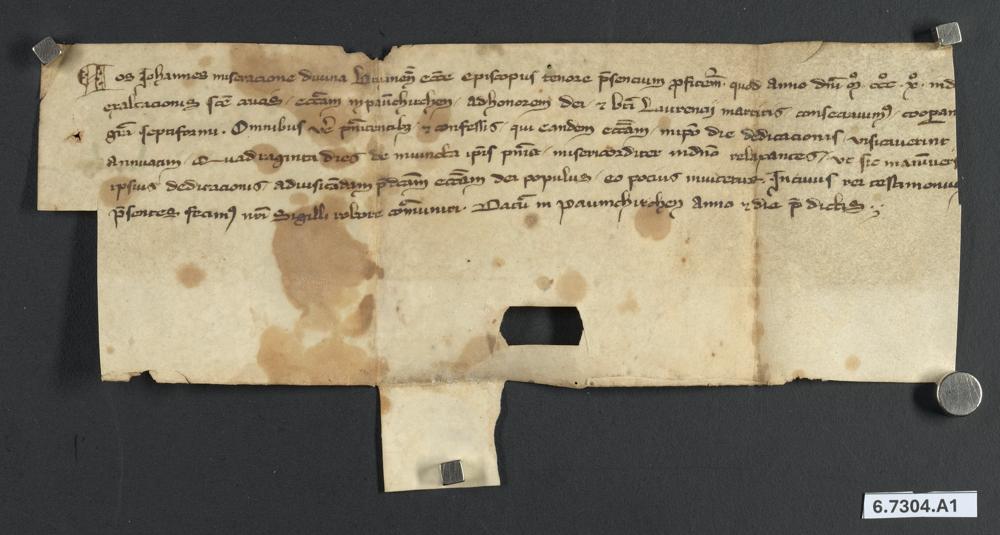 Nos Johannes miseracione divina Brixineñ eccɫe episcopus tenore p̄sencium ꝓfitem̄ quod anno dñi Mͦ CCCͦ Xͦ. ind
exaltacionis sc̄e crucis / eccɫam in paunchirchen / ad honorem dei / ⁊ bt̄i Laurencii martiris consecravim⁹ / coopan
gr̄a septiformi . Omnibus v̄e pēnitentib⁊ ⁊ confessis / qui eandem eccɫam / in ip̄o die dedicacionis / visitaverint
annuatim / Quadraginta dies de iniuncta ip̄is pn̄ia / misericorditer in dño relaxantes / ut sic
ipsius dedicacionis / ad visitandam p̄dcām eccɫam dei populus / eo pocius invitetur. In cuius rei testimoniu
p̄sentes fecim⁹ nr̄i Sigilli robore com̄uniri . Datū in Paunchirchen Anno ⁊ die p̄dictis .
6.7304.A1